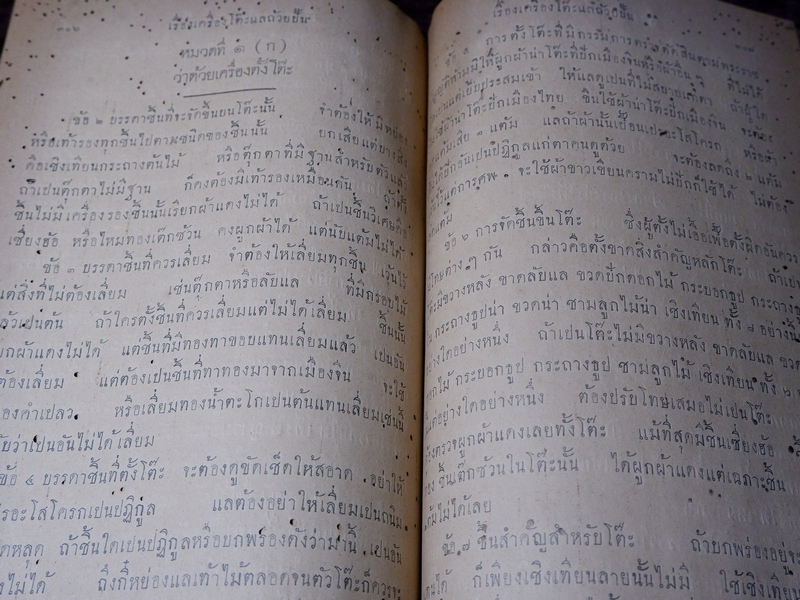 ๓๑๖ เรื่องเครื่องโต๊ะแลถ้วยปั้น
หมวดที่ ๑ (ก)
ว่าด้วยเครื่องตั้งโต๊ะ
ข้อ ๒ บรรดาชิ้นที่จะจัดขึ้นบนโต๊ะนั้น จำต้องให้มีหย่อง
หรือเท้ารองทุกชิ้นไปตามชนิดของชิ้นนั้น ยกเสียแต่บางสิ่ง
คือเชิงเทียนกระถางต้นไม้ หรือตุ๊กตาที่มีฐานสำหรับตัวแล้ว
ถ้าเป็นตุ๊กตาไม่มีฐาน ก็คงต้องมีเท้ารองเหมือนกัน ถ้า
ชิ้นไม่มีเครื่องรองชิ้นนั้นเรียกผ้าแดงไม่ได้ ถ้าเป็นชิ้นวิเศษคือ
เซี่ยงฮ้อ หรือไหมทองเต๊กซ้วน คงผูกผ้าได้ แต่นับแต้มไม่ได้
ข้อ ๓ บรรดาชิ้นที่ควรเลี่ยม จำต้องให้เลี่ยมทุกชิ้น เว้นไว้
แต่สิ่งที่ไม่ต้องเลี่ยม เช่นตุ๊กตาหรือลับแล ที่มีกรอบไม้
แล้วเป็นต้น ถ้าใครตั้งชิ้นที่ควรเลี่ยมแต่ไม่ได้เลี่ยม ชิ้นนั้น
ผูกผ้าแดงไม่ได้ แต่ชิ้นที่มีทองทาขอบแทนเลี่ยมแล้ว เป็นอัน
ต้องเลี่ยม แต่ต้องเป็นชิ้นที่ทาทองมาจากเมืองจีน จะใช้
ทองคำเปลว หรือเลี่ยมทองน้ำตะโกเป็นต้นแทนเลี่ยมเช่นนี้
นับว่าเป็นอันไม่ได้เลี่ยม
ข้อ ๔ บรรดาชิ้นที่ตั้งโต๊ะ จะต้องดูขัดเช็ดให้สอาด อย่าให้
โสโครกเป็นปฏิกูล แลต้องอย่าให้เลี่ยมเป็นถนิม
หลุด ถ้าชิ้นใดเป็นปฏิกูลหรือบกพร่องดังว่ามานี้ เป็นอัน
ไม่ได้ ถึงที่หย่องแลเท้าไม้ตลอดจนตัวโต๊ะก็ควรจะ
เรื่องเครื่องโต๊ะแลถ้วยปั้น
การตั้งโต๊ะที่มีการนับการตรวจตัดสิน
ให้ผูกผ้าน่าโต๊ะที่ปักเมืองจีนหรือผ้าอื่น ๆ ที่ไม่ได้
แต่เย็บประสมเข้า ให้แลดูเป็นที่ไม่สบายแก่ตา ถ้าผู้ใด
ใช้ผ้าน่าโต๊ะปักเมืองไทย ขืนใช้ผ้าน่าโต๊ะปักเมืองจีน จะต้อง
แต้มเสีย ๑ แต้ม แลถ้าผ้านั้นเปื้อนเปรอะโสโครก หรือผ้า
ปักอันเป็นปฏิกูลแก่ตาคนดูด้วย จะต้องลดถึง ๒ แต้ม
เว้นไว้แต่การศพ จะใช้ผ้าขาวเขียนครามไม่ปักก็ใช้ได้ ไม่ต้อง
ลดแต้ม
ข้อ ๖ การจัดชิ้นขึ้นโต๊ะ ซึ่งผู้ตั้งไม่เอื้อเพื่อตั้งผิดอันควร
โทษต่าง ๆ กัน กล่าวคือตั้งขาดสิ่งสำคัญหลักโต๊ะ ถ้าเป็น
โต๊ะมีขวางหลัง ขาดลับแล ขวดปักดอกไม้ กระบอกธูป กระถางธูป
กระถางธูปน่า ขวดน่า ชามลูกไม้น่า เชิงเทียน ทั้ง ๘ อย่างนี้
อย่างใดอย่างหนึ่ง ถ้าเป็นโต๊ะไม่มีขวางหลัง ขาดลับแล ขวด
ดอกไม้ กระบอกธูป กระถางธูป ชามลูกไม้ เชิงเทียน ทั้ง ๖
แต่อย่างใดอย่างหนึ่ง ต้องปรับโทษเสมอไม่เป็นโต๊ะ
ตรวจผูกผ้าแดงเลยทั้งโต๊ะ แม้ที่สุดมีชิ้นเซี่ยงฮ้อ
ชิ้นเต๊กซ้วนในโต๊ะนั้น ได้ผูกผ้าแดงแต่เฉภาะชิ้น
แต้มไม่ได้เลย
ข้อ ๗ ชิ้นสำคัญสำหรับโต๊ะ ถ้าบกพร่องอยู่
ก็เพียงเชิงเทียนลายนั้นไม่มี ใช้เชิงเทียน